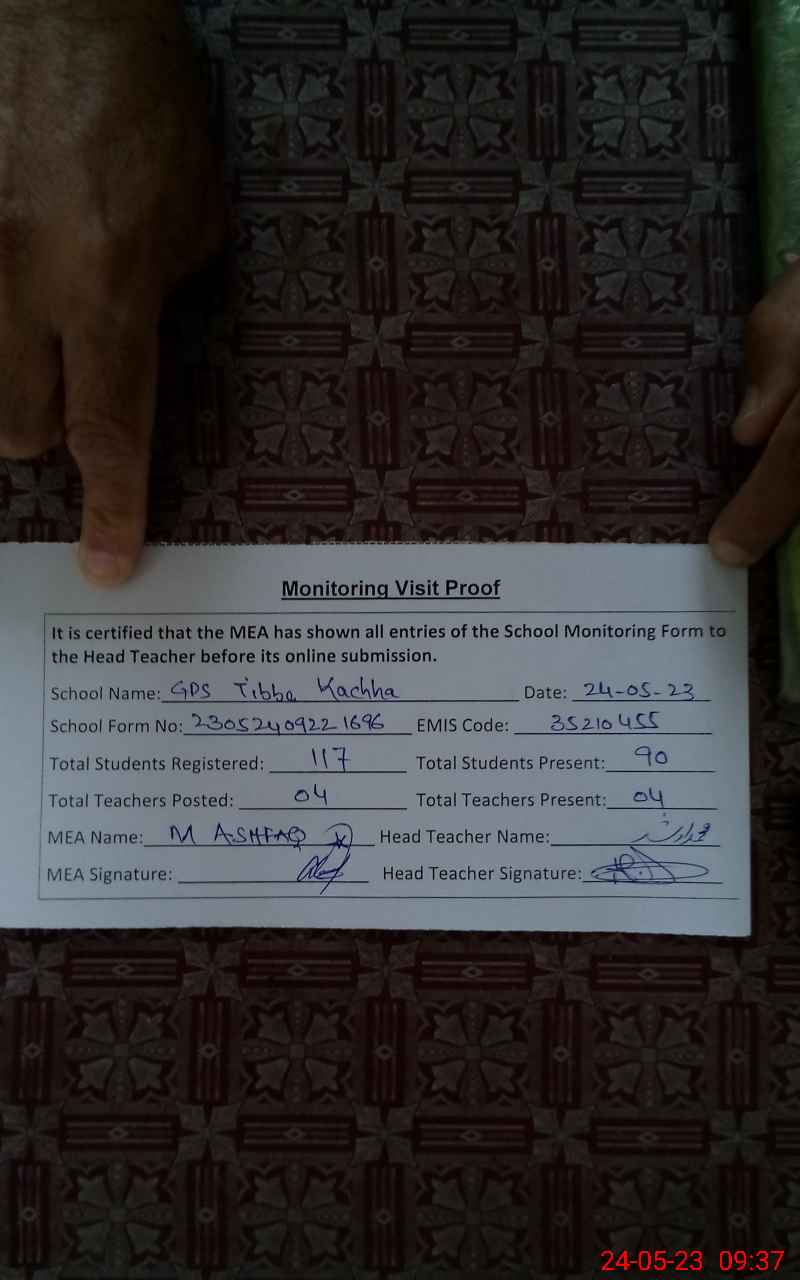 Monitoring Visit Proof
It is certified that the MEA has shown all entries of the School Monitoring Form to
the Head Teacher before its online submission.
School Name: GPS Tibba Kachha Date: 24-05-23
School Form No: 23052409221696 EMIS Code: 35210455
Total Students Registered: 117 Total Students Present: 90
Total Teachers Posted: 04 Total Teachers Present: 04
MEA Name: M ASHFAQ Head Teacher Name:
MEA Signature: Head Teacher Signature:
24-05-23 09:37